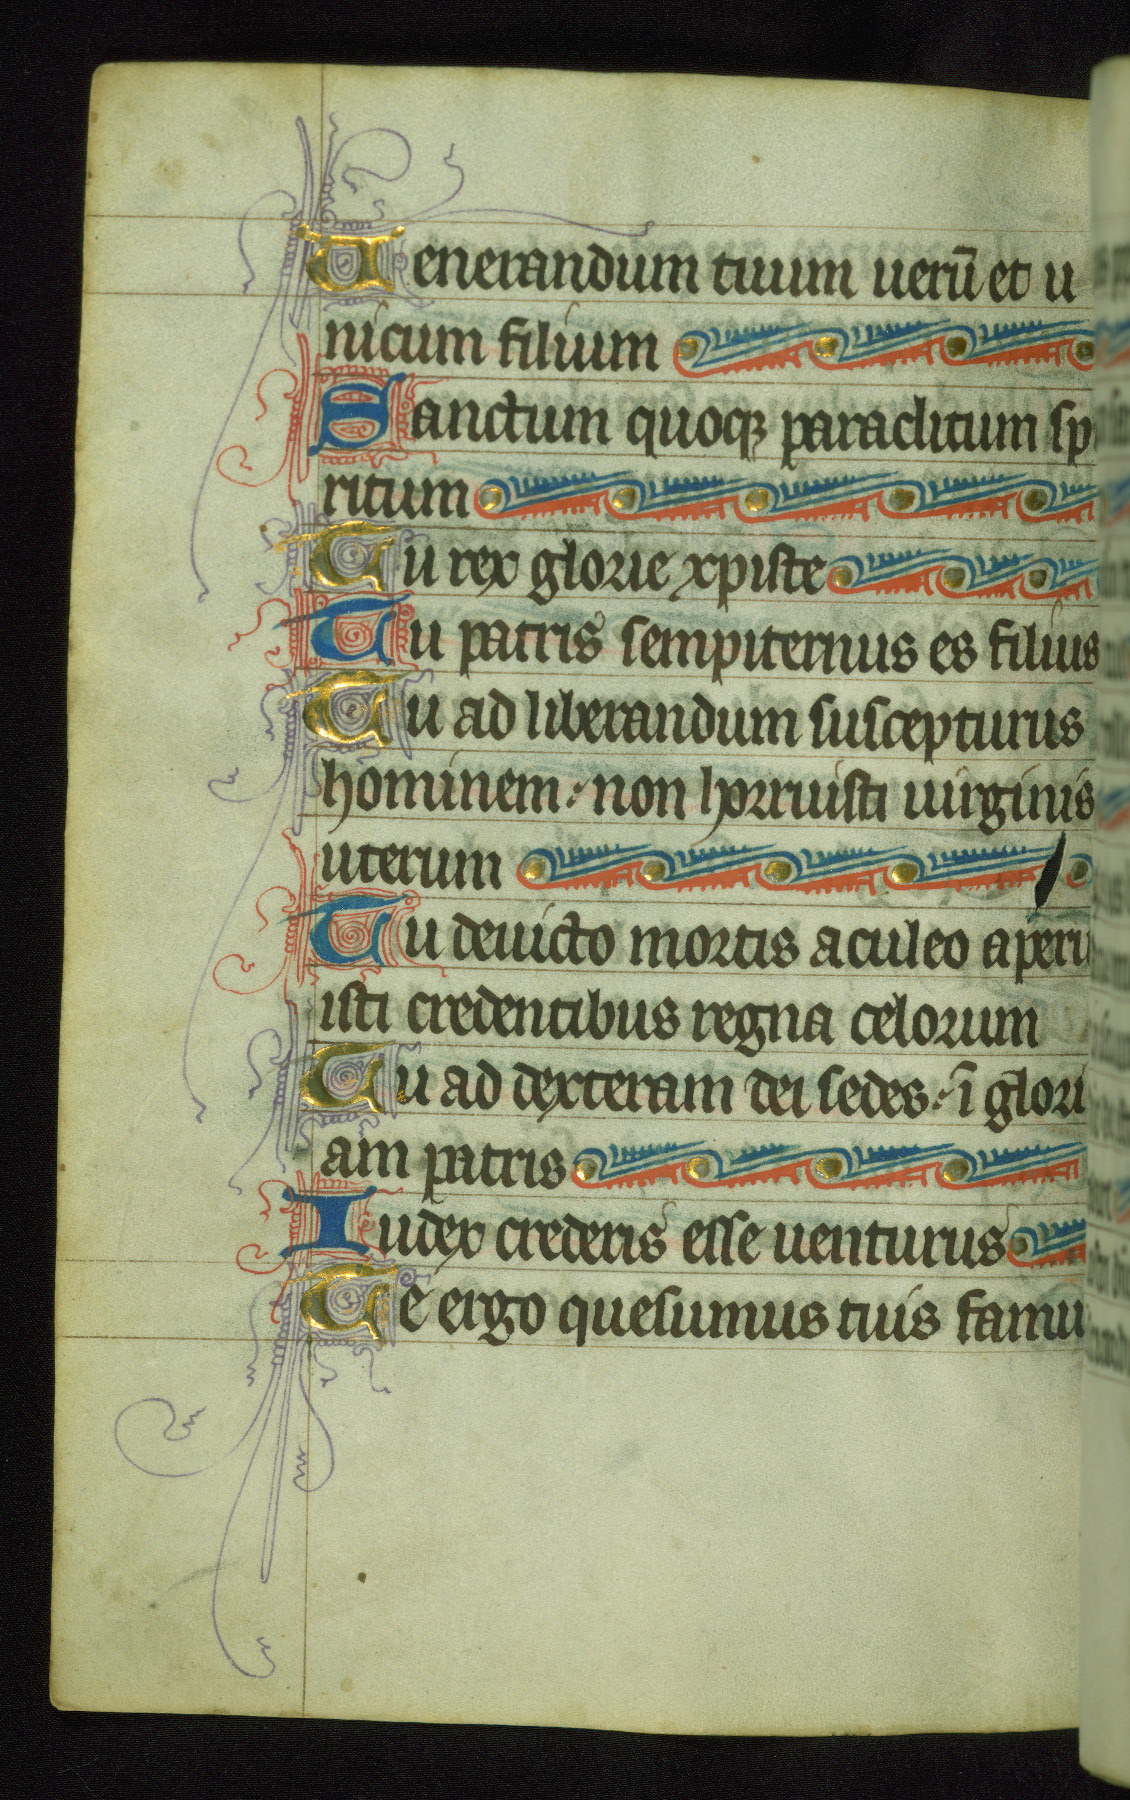 Uenerandum tuum uerū et u
nicum filium
Sanctum quoqꝫ paraclitum sp
ritum
Tu rex glorie xpiste
Tu patris sempiternus es filius
Tu ad liberandum suscepturus
hominem: non horruisti uirginis
uterum
Tu deuicto mortis aculeo aperu
isti credentibus regna celorum
Tu ad dexteram dei sedes: ī glori
am patris
Iudex crederis esse uenturus
Te ergo quesumus tuis famu